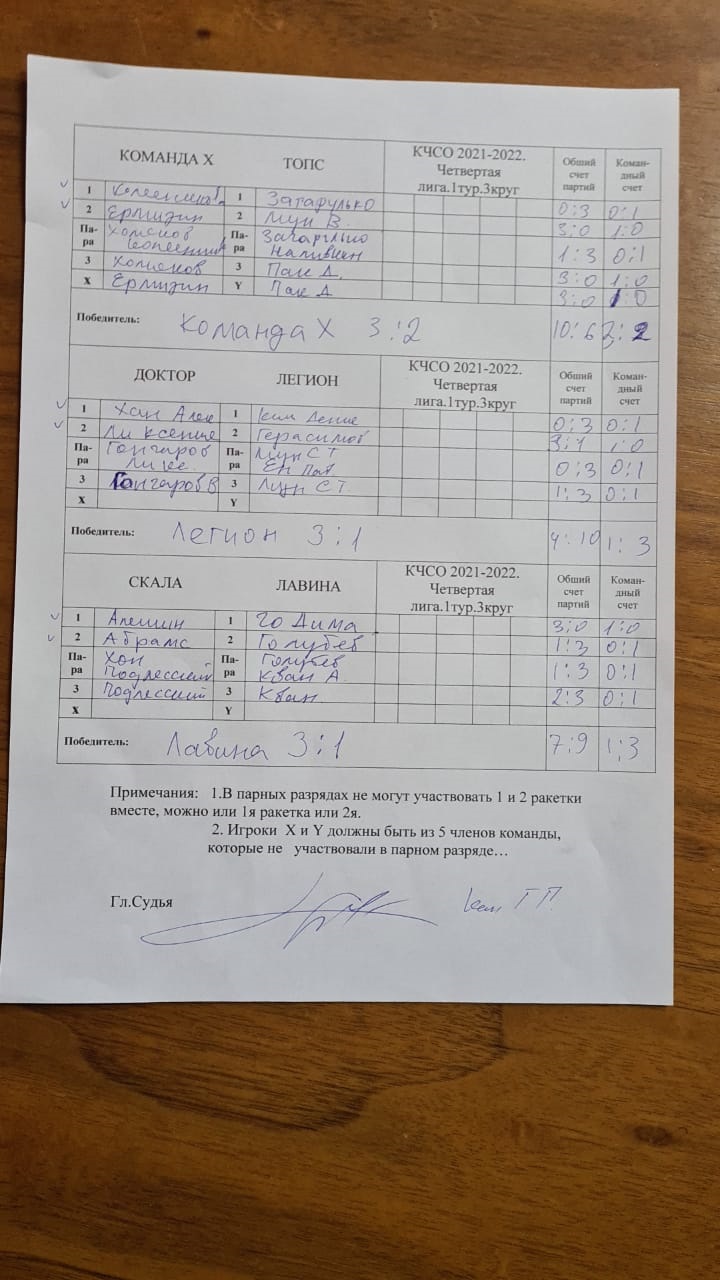 КОМАНДА Х ТОПС КЧСО 2021-2022. Четвертая лига.1тур.3круг Общий счет партий Коман-дный счет
1 1 Загарулько 0:3 0:1
2 Ермизин 2 Мун В. 3:0 1:0
Па-ра Хомяков Па-ра 1:3 0:1
3 Хомяков 3 Пак Д. 3:0 1:0
Х Ермизин Y Пак Д 3:0 1:0
Победитель: Команда Х 3:2 10:6 3:2
ДОКТОР ЛЕГИОН КЧСО 2021-2022. Четвертая лига.1тур.3круг Общий счет партий Коман-дный счет
1 Хан Алек 1 Ким Денис 0:3 0:1
2 Ли Ксение 2 Герасимов 3:1 1:0
Па-ра Гончаров Ли Кс. Па-ра Мун СТ Ен Пав 0:3 0:1
3 Гончаров В 3 Мун СТ 1:3 0:1
Х Y
Победитель: Легион 3:1 4:10 1:3
СКАЛА ЛАВИНА КЧСО 2021-2022. Четвертая лига.1тур.3круг Общий счет партий Коман-дный счет
1 Алешин 1 Го Дима 3:0 1:0
2 Абрамс 2 Голубев 1:3 0:1
Па-ра Хон Подлесский Па-ра Голубев Кван А 1:3 0:1
3 Подлесский 3 Кван 2:3 0:1
Х Y
Победитель: Лавина 3:1 7:9 1:3
Примечания: 1.В парных разрядах не могут участвовать 1 и 2 ракетки
вместе, можно или 1я ракетка или 2я.
2. Игроки Х и Y должны быть из 5 членов команды,
которые не участвовали в парном разряде…
Гл.Судья Ким Г П.